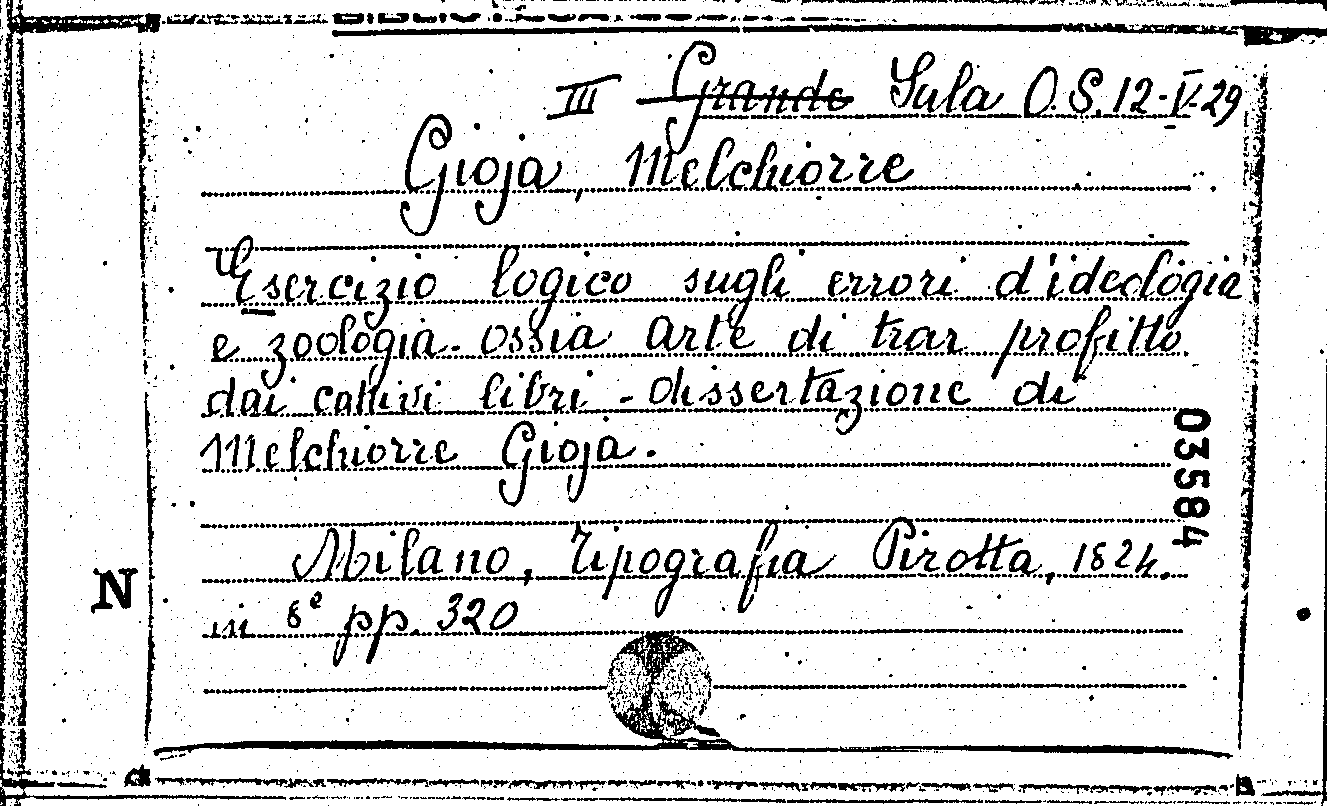 III Grande Sala O.S. 12-V-29
Gioja, Melchiorre
Esercizio logico sugli errori d'ideologia
e zoologia. ossia arte di trar profitto
dai cattivi libri - dissertazione di
Melchiorre Gioja.
03584
Milano, Tipografia Pirotta, 1824.
N
in 8º pp. 320